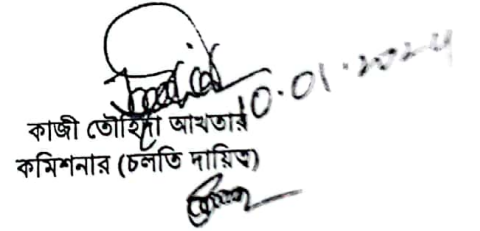 10.01.2024
কাজী তৌহিদা আখতার
কমিশনার (চলতি দায়িত্ব)